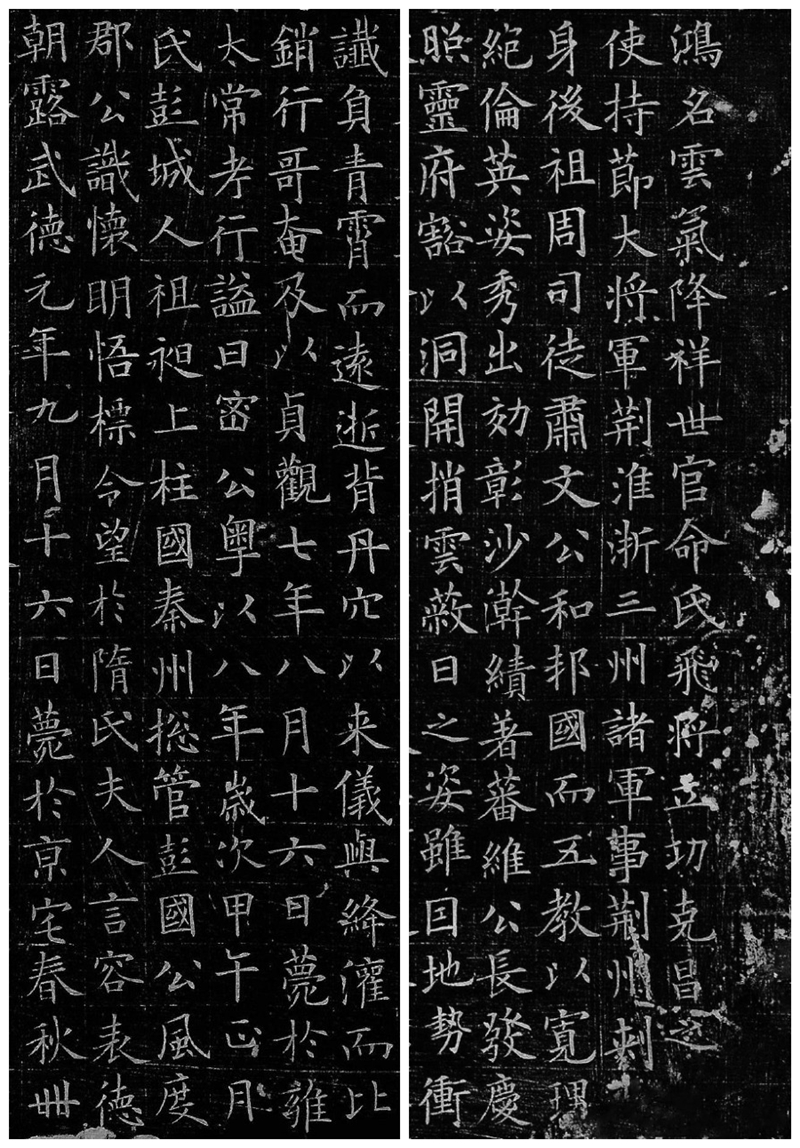 鴻名雲氣降祥世官命氏飛將立功克昌之
使持節大將軍荊淮浙三州諸軍事荊州刺
身後祖周司徒肅文公和邦國而五教以寬理
絕倫英姿秀出効彰沙澣績著蕃維公長發慶
照靈府豁以洞開捎雲蔽日之姿雖因地勢衝
讖負青霄而遠逝背丹穴以来儀與絳灌而比
銷行哥奄及以貞觀七年八月十六日薨於雍
太常考行謚曰密公粵以八年歲次甲午正月
氏彭城人祖昶上柱國秦州揔管彭國公風度
郡公識懷明悟標令望於隋氏夫人言容表德
朝露武德元年九月十六日薨於京宅春秋卌